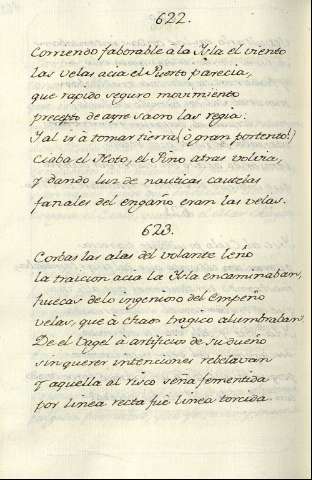 622.
Corriendo faborable à la Isla el viento
las velas acia el Puerto parecia,
que rapido seguro movimiento
precepto de ayre sacro las regia:
Y al ir à tomar tierra (ò gran portento!)
Ciaba el Noto, el Pino atras volvia,
y dando luz de nauticas cautelas
fanales del engaño eran las velas.
623.
Corbas las alas del volante leño
la traicion acia la Isla encaminaban,
huecas de lo ingenioso del empeño
velas, que à chaos tragico alumbraban.
De el Vagel à artificio de su dueño
sin querer intenciones rebelavan
y aquella al risco seña fementida
por linea recta fuè linea torcida.